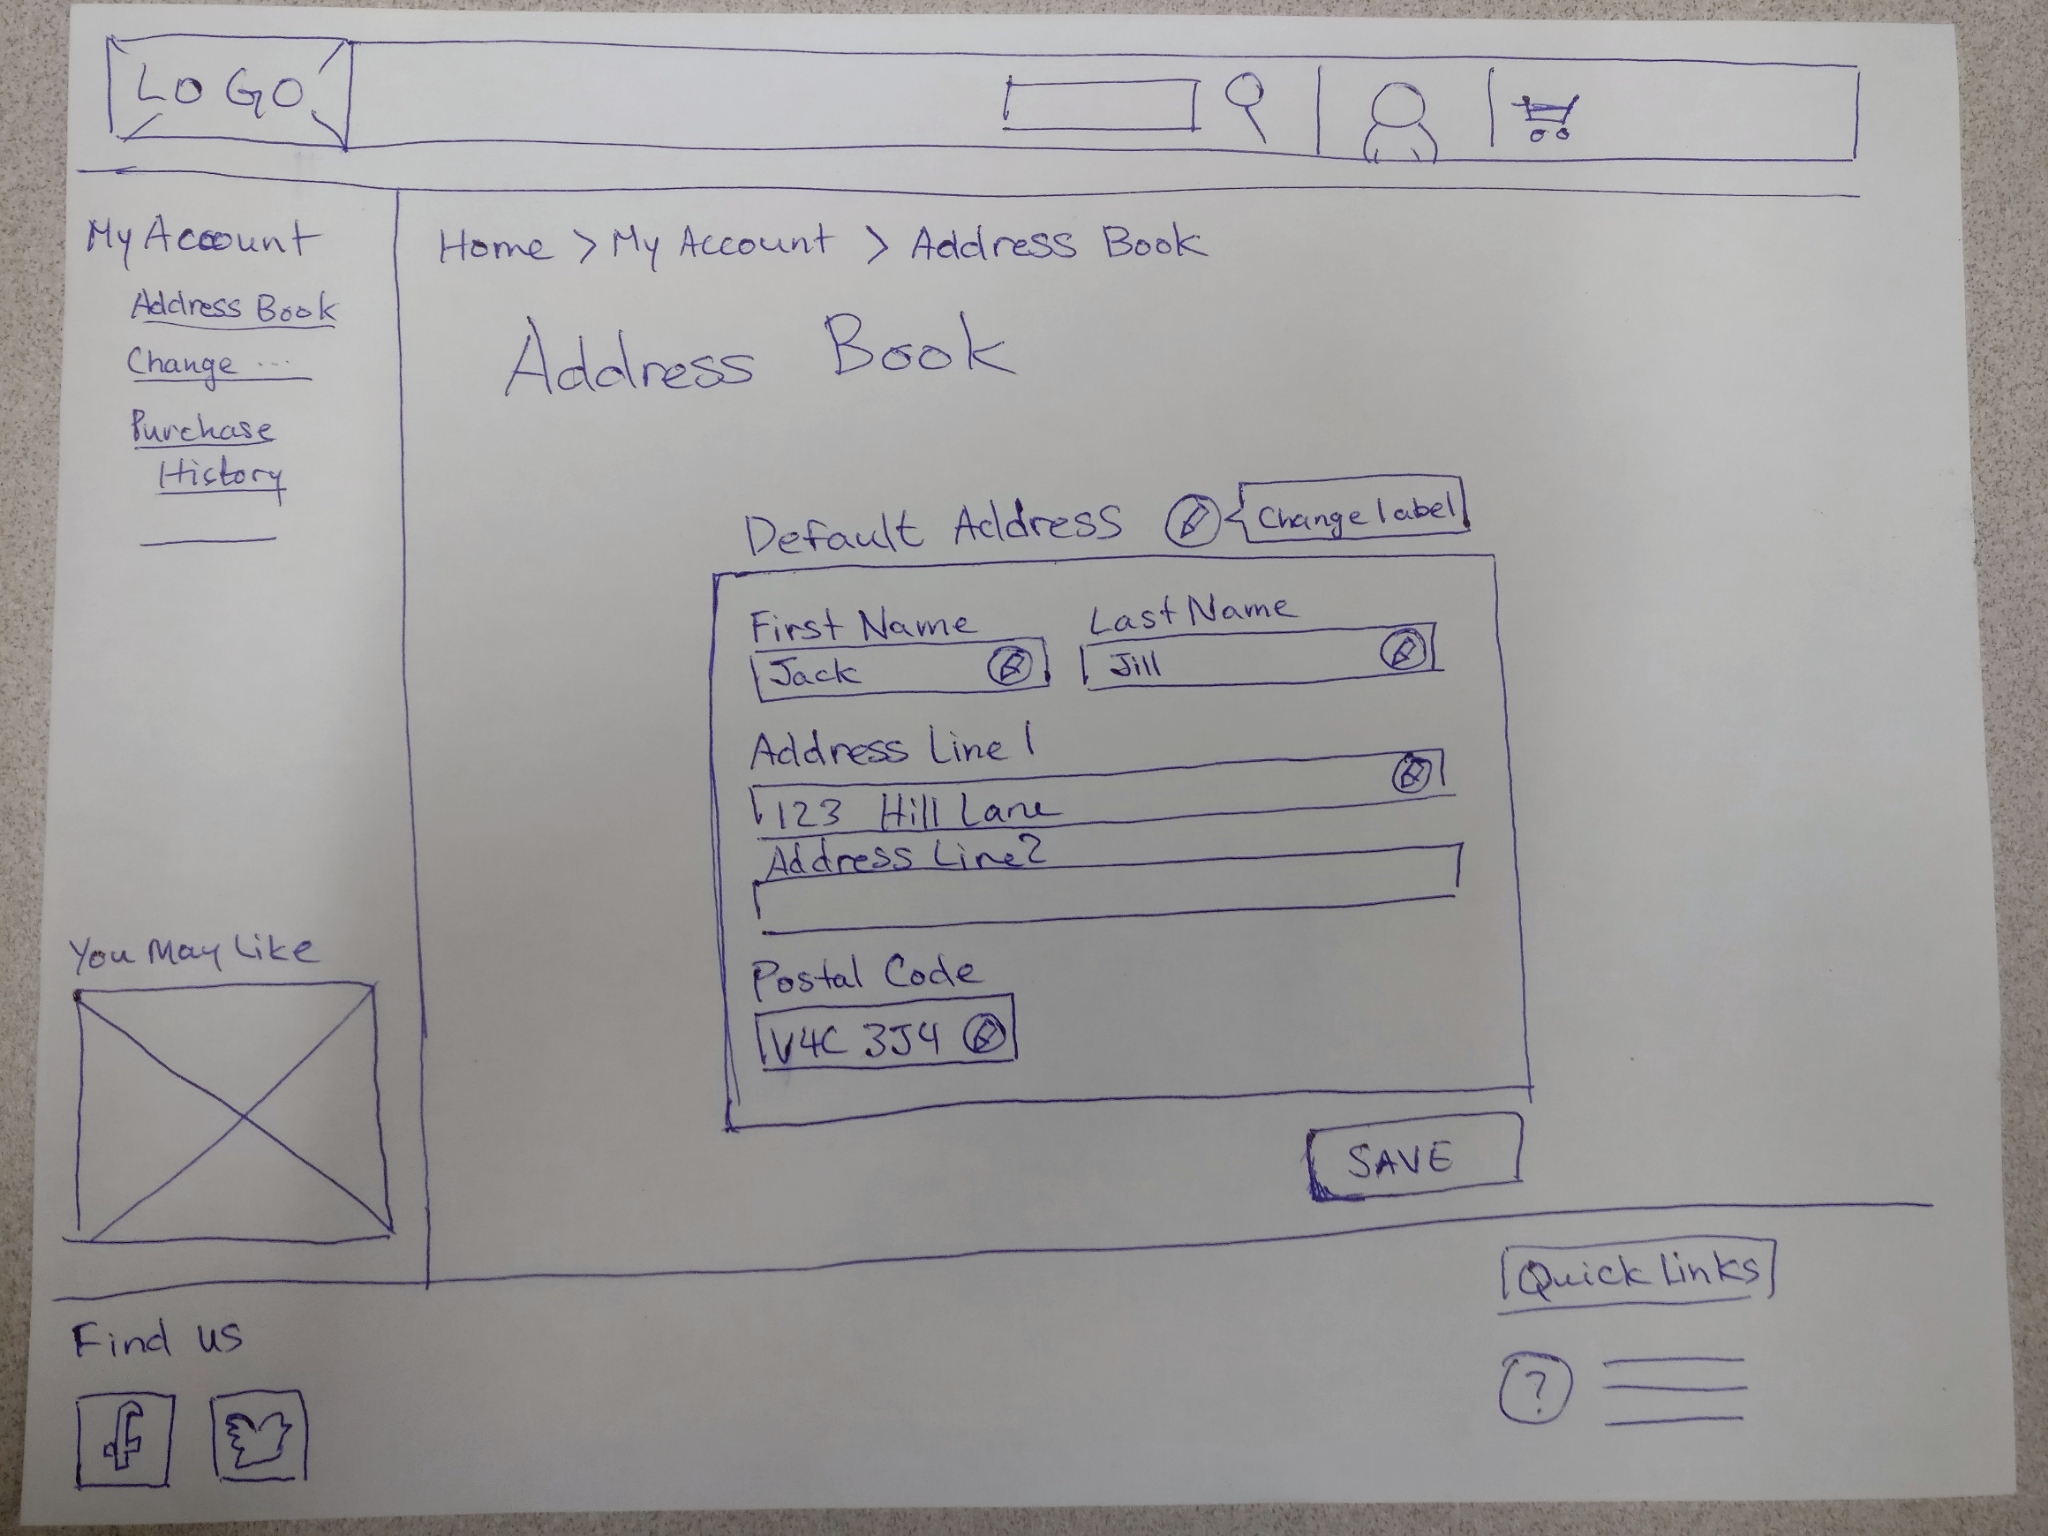 LOGO
My Account
Address Book
Change ...
Purchase
History
Home > My Account > Address Book
Address Book
Default Address
Change label
First Name
Last Name
Jack
Jill
Address Line 1
123 Hill Lane
Address Line 2
Postal Code
V4C 3J4
SAVE
You May Like
Find us
f
Quick Links
?